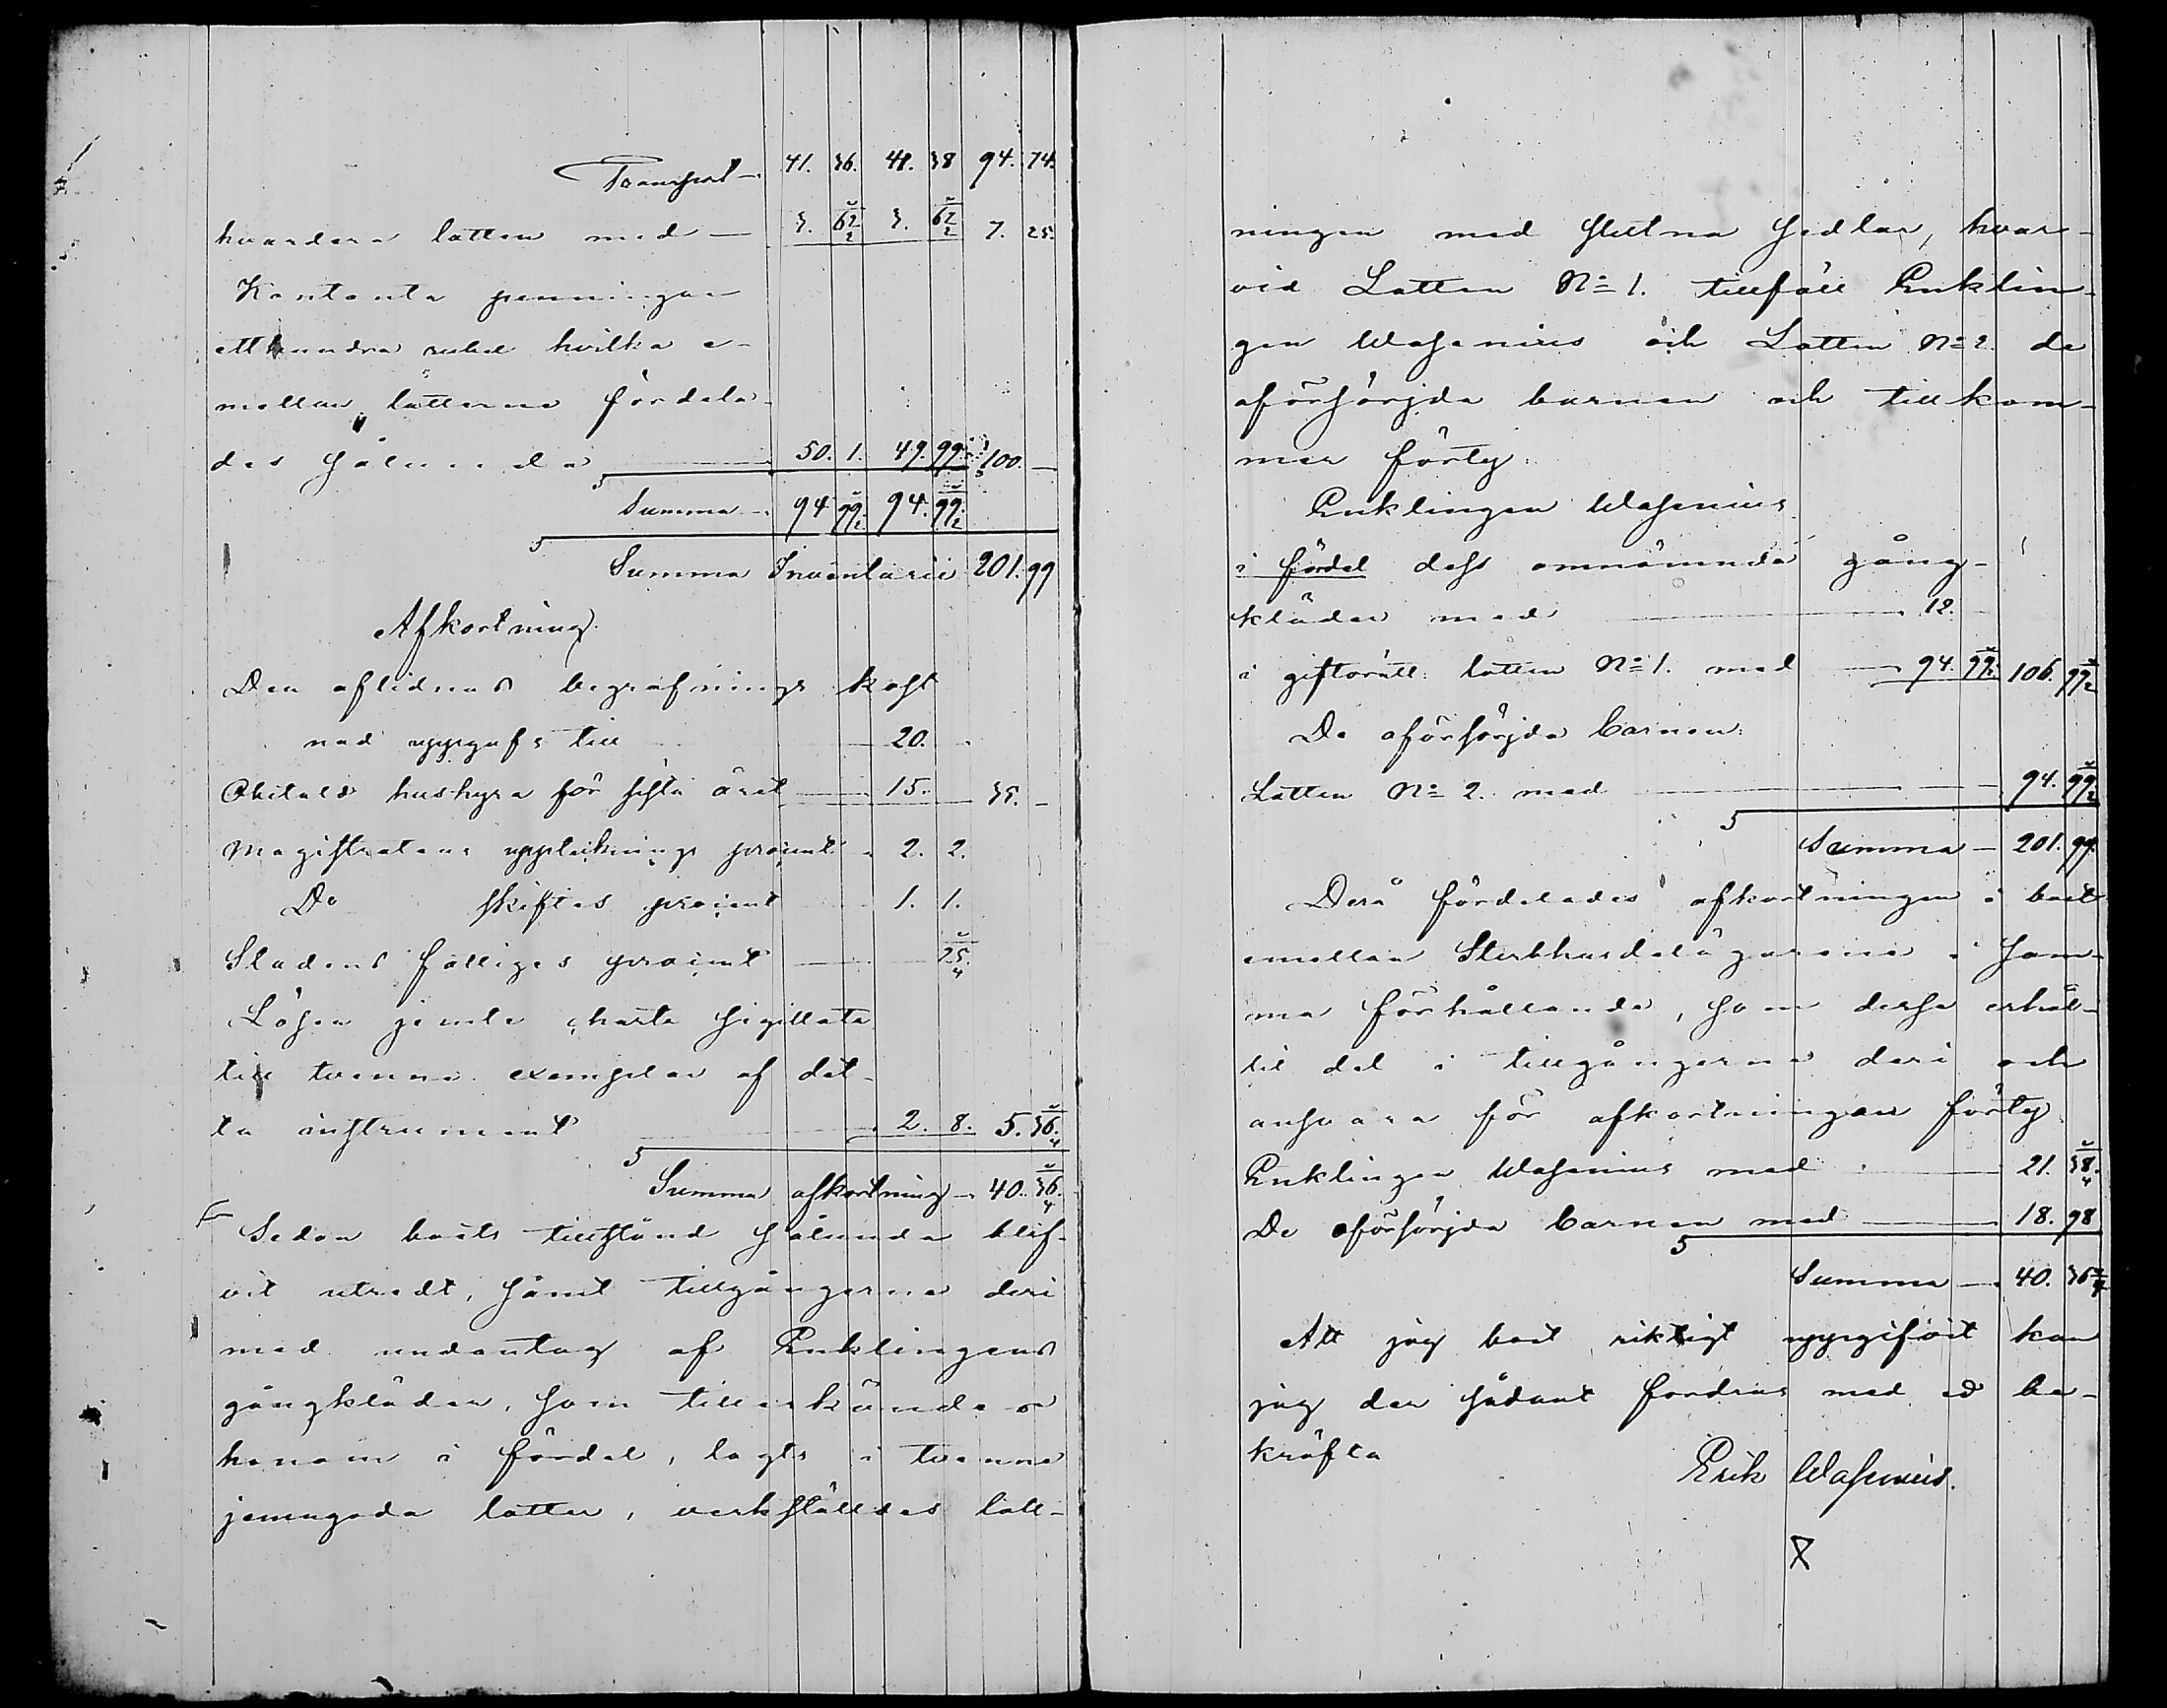 Transport — 41. 36. 41. 38 94. 74.
hvardera lotten med — 3. 62½ 3. 62½ 7. 25.
Kontanta penningar
etthundra rubel hvilka e-
mellan lotterne fördela-
des sålunda 50. 1. 49. 99. 100. —
Summa — 94 99½ 94. 99½
Summa Inventarii 201. 99
Afkortning.
Den aflidnas begrafnings kost
nad uppgafs till — 20. —
Obetald hushyra för sista året — 15. — 35. —
Magistratens uppteknings procent 2. 2.
Do skiftes procent 1. 1.
Stadens fattiges procent — 25¼
Lösen jemte charta sigillata
till tvenne exemplar af det-
ta instrument — 2. 8. 5. 36¼
Summa afkortning — 40. 36¼
Sedan boets tillstånd sålunda blif-
vit utredt, samt tillgångarne deri
med undantag af Enklingens
gångkläder, som tillerkändes
honom i fördel, lagts i tvenne
jemngoda lotter, verkställdes lott-
ningen med slutna sedlar, hvar-
vid Lotten No 1. tillföll Enklin-
gen Wasenius och Lotten No 2. de
oförsörjda barnen och tillkom-
mer förty:
Enklingen Wasenius
i fördel dess omnämnda gång-
kläder med — 12. —
i giftorätt: lotten No 1. med — 94. 99½ 106. 99½
De oförsörjda barnen:
Lotten No 2. med — 94. 99½
Summa — 201. 99.
Derå fördelades afkortningen i boet
emellan Sterbhusdelägarene i sam-
ma förhållande, som desse erhål-
lit del i tillgångarne deri och
ansvara för afkortningen förty
Enklingen Wasenius med — 21. 38¼
De oförsörjda barnen med — 18. 98
Summa — 40. 36¼
Att jag boet riktigt uppgifvit kan
jag der sådant fordras med ed be-
kräfta
Erik Wasenius.